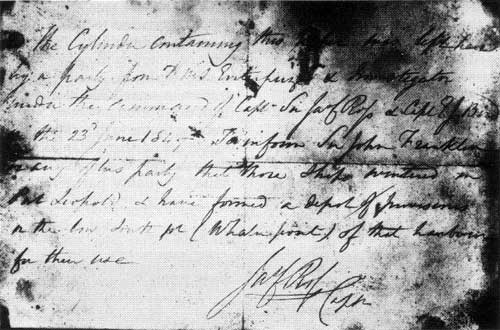 The Cylinder containing this paper was left here
by a party from H.M.S Enterprize & Investigator
under the command of Capt Sir Jas C Ross & Capt E J Bird
the 23d June 1849 To inform Sir John Franklin
or any of his party that those Ships wintered in
Port Leopold, & have formed a depot of provisions
on the low south pt (Whaler point) of that harbour
for their use
Jas C Ross
Capt